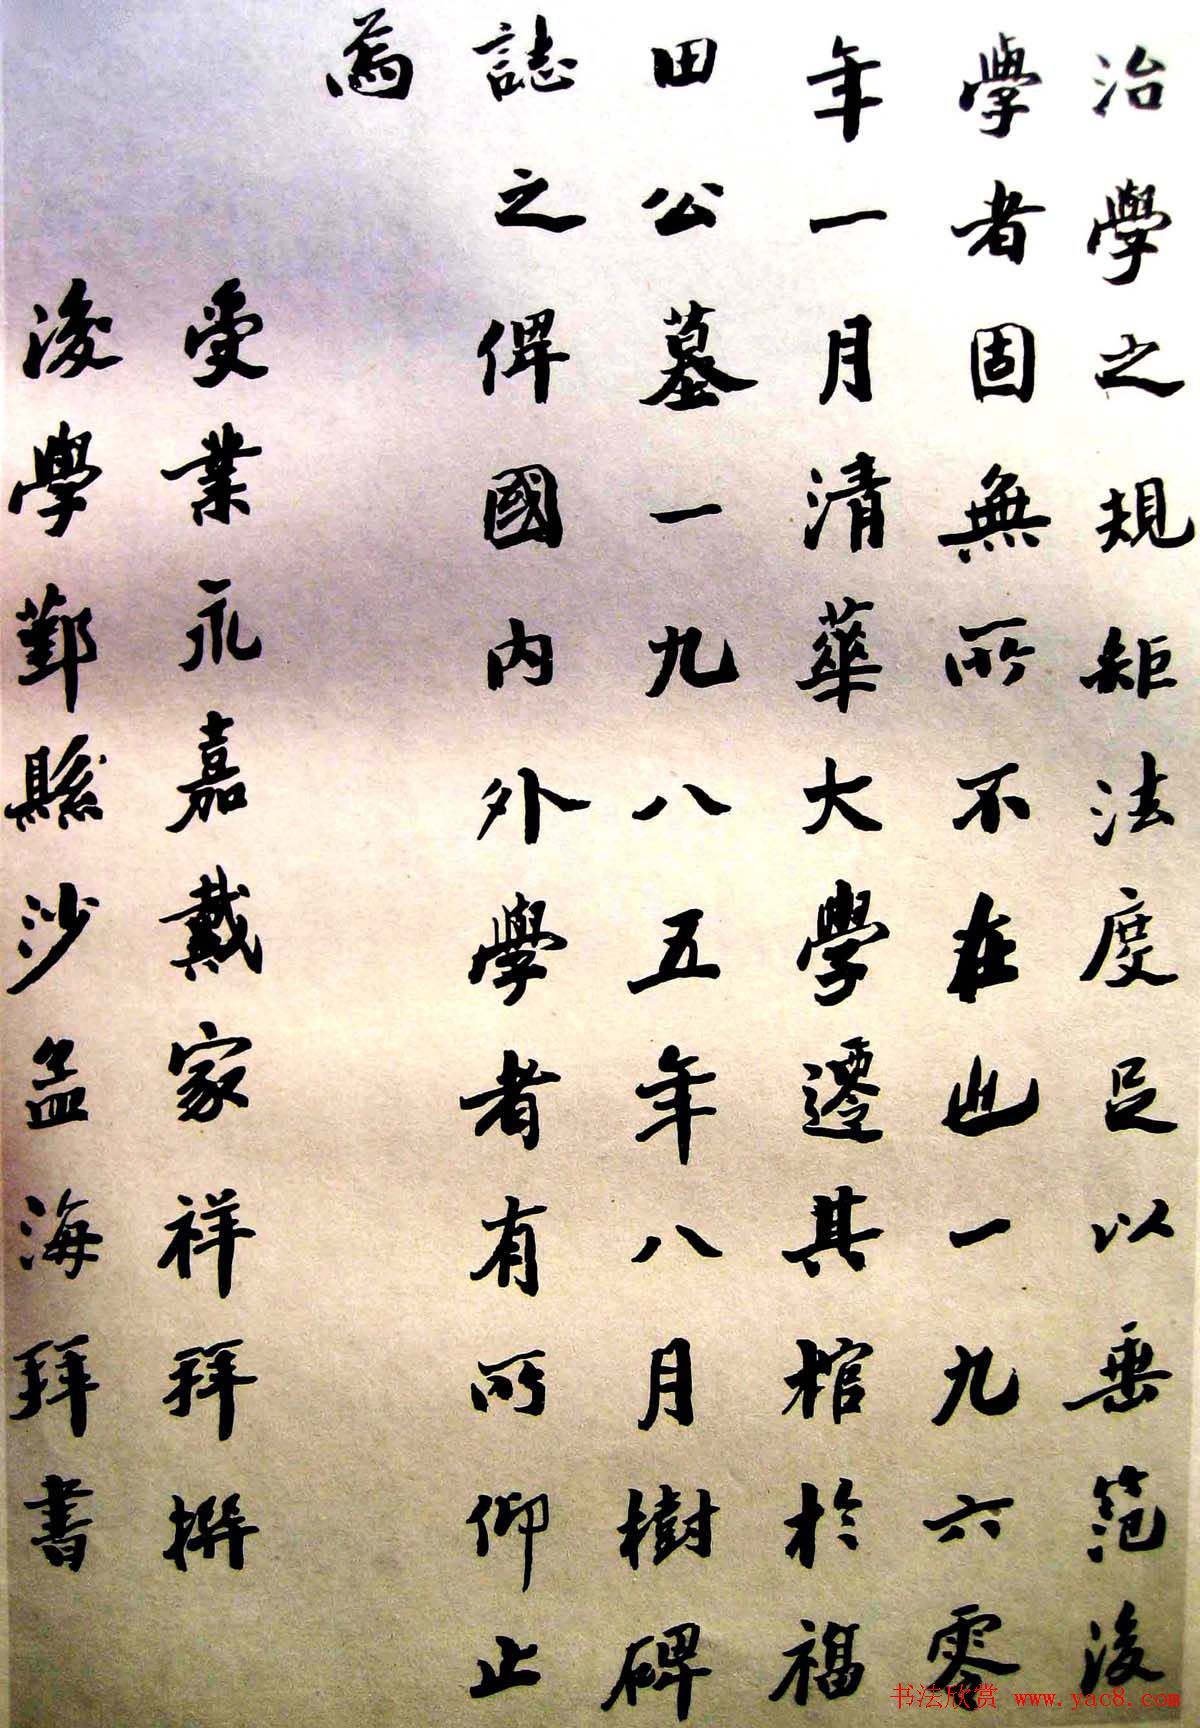 治學之規矩法度足以垂範後
學者固無所不在也一九六零
年一月清華大學遷其棺於福
田公墓一九八五年八月樹碑
誌之俾國內外學者有所仰止
焉
受業永嘉戴家祥拜撰
後學鄞縣沙孟海拜書
书法欣赏 www.yac8.com